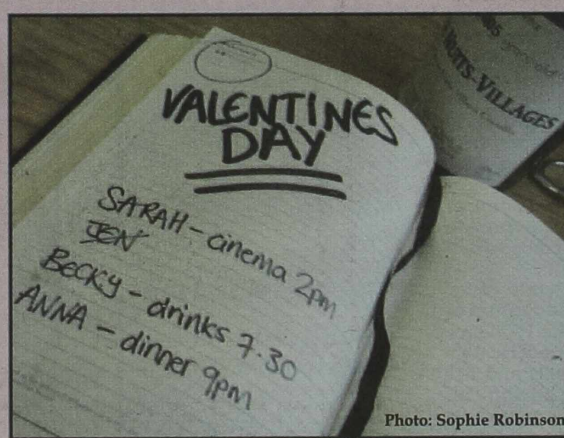 VALENTINES
DAY
SARAH - cinema 2pm
JEN
BECKY - drinks 7.30
ANNA - dinner 9pm
UITS-VILLAGES
Photo: Sophie Robinson